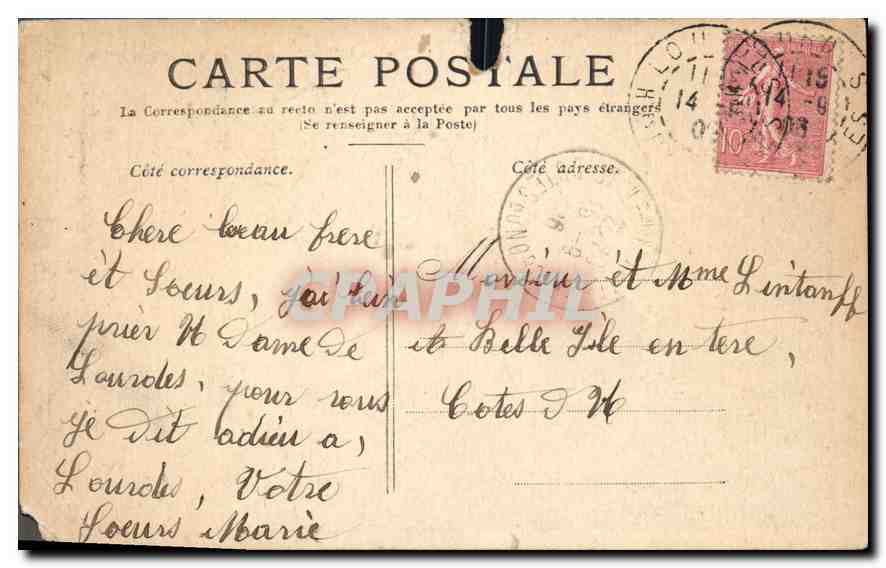 CARTE POSTALE
La Correspondance au recto n'est pas acceptée par tous les pays étrangers
(Se renseigner à la Poste)
Côté correspondance.
Côté adresse.
Cheré beau frere
ét Soeurs, j'ai bien
priér N Dame de
Lourdes, pour vous
je dit adieu a,
Lourdes, Votre
Soeurs Marie
Monsieur ét Mme Lintanff
à Belle Ile en tere,
Cotes d N
10
CPAPHIL